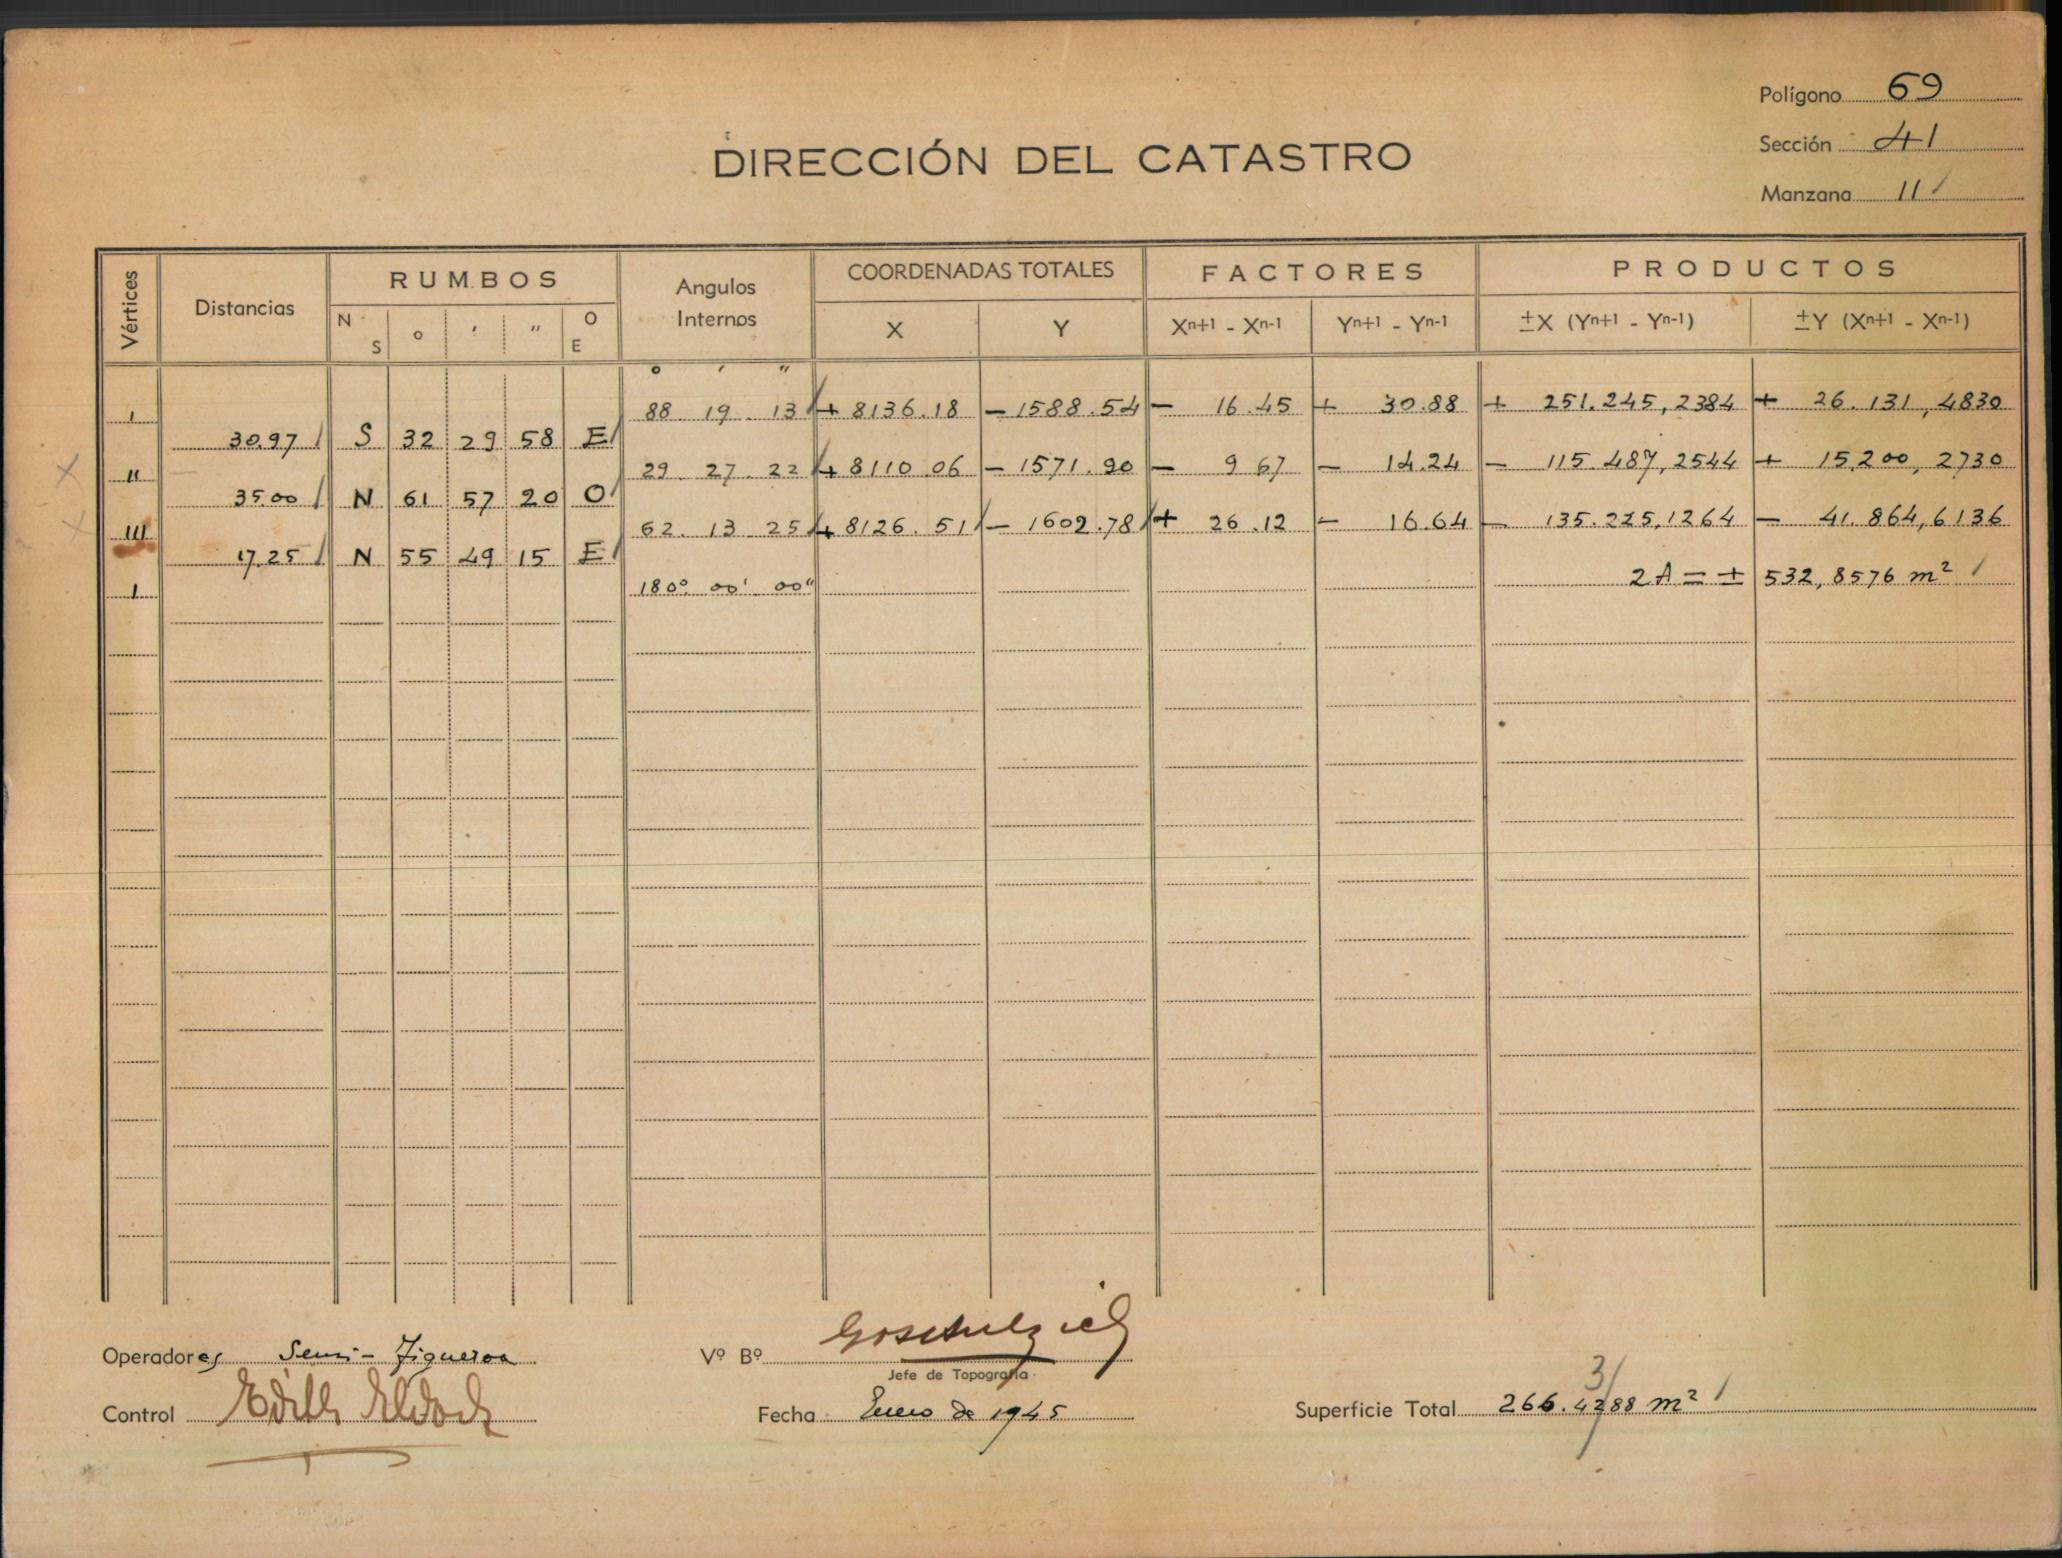 Polígono 69
DIRECCIÓN DEL CATASTRO
Sección 41
Manzana 11
Vértices Distancias RUMBOS Angulos Internos COORDENADAS TOTALES FACTORES PRODUCTOS
N S o ' " O E X Y Xn+1 - Xn-1 Yn+1 - Yn-1 ±X (Yn+1 - Yn-1) ±Y (Xn+1 - Xn-1)
o ' "
I 88 19 13 + 8136.18 - 1588.54 - 16.45 + 30.88 + 251.245,2384 + 26.131,4830
30.97 S 32 29 58 E
II 29 27 22 + 8110 06 - 1571.90 - 9 67 - 14.24 - 115.487,2544 + 15.200,2730
35.00 N 61 57 20 O
III 62 13 25 + 8126.51 - 1602.78 + 26.12 - 16.64 - 135.225,1264 - 41.864,6136
17.25 N 55 49 15 E
I 180° 00' 00" 2A = ± 532,8576 m²
Operadores Figueroa Vº Bº
Jefe de Topografía
Control Fecha Enero de 1945 Superficie Total 266.4288 m²
3